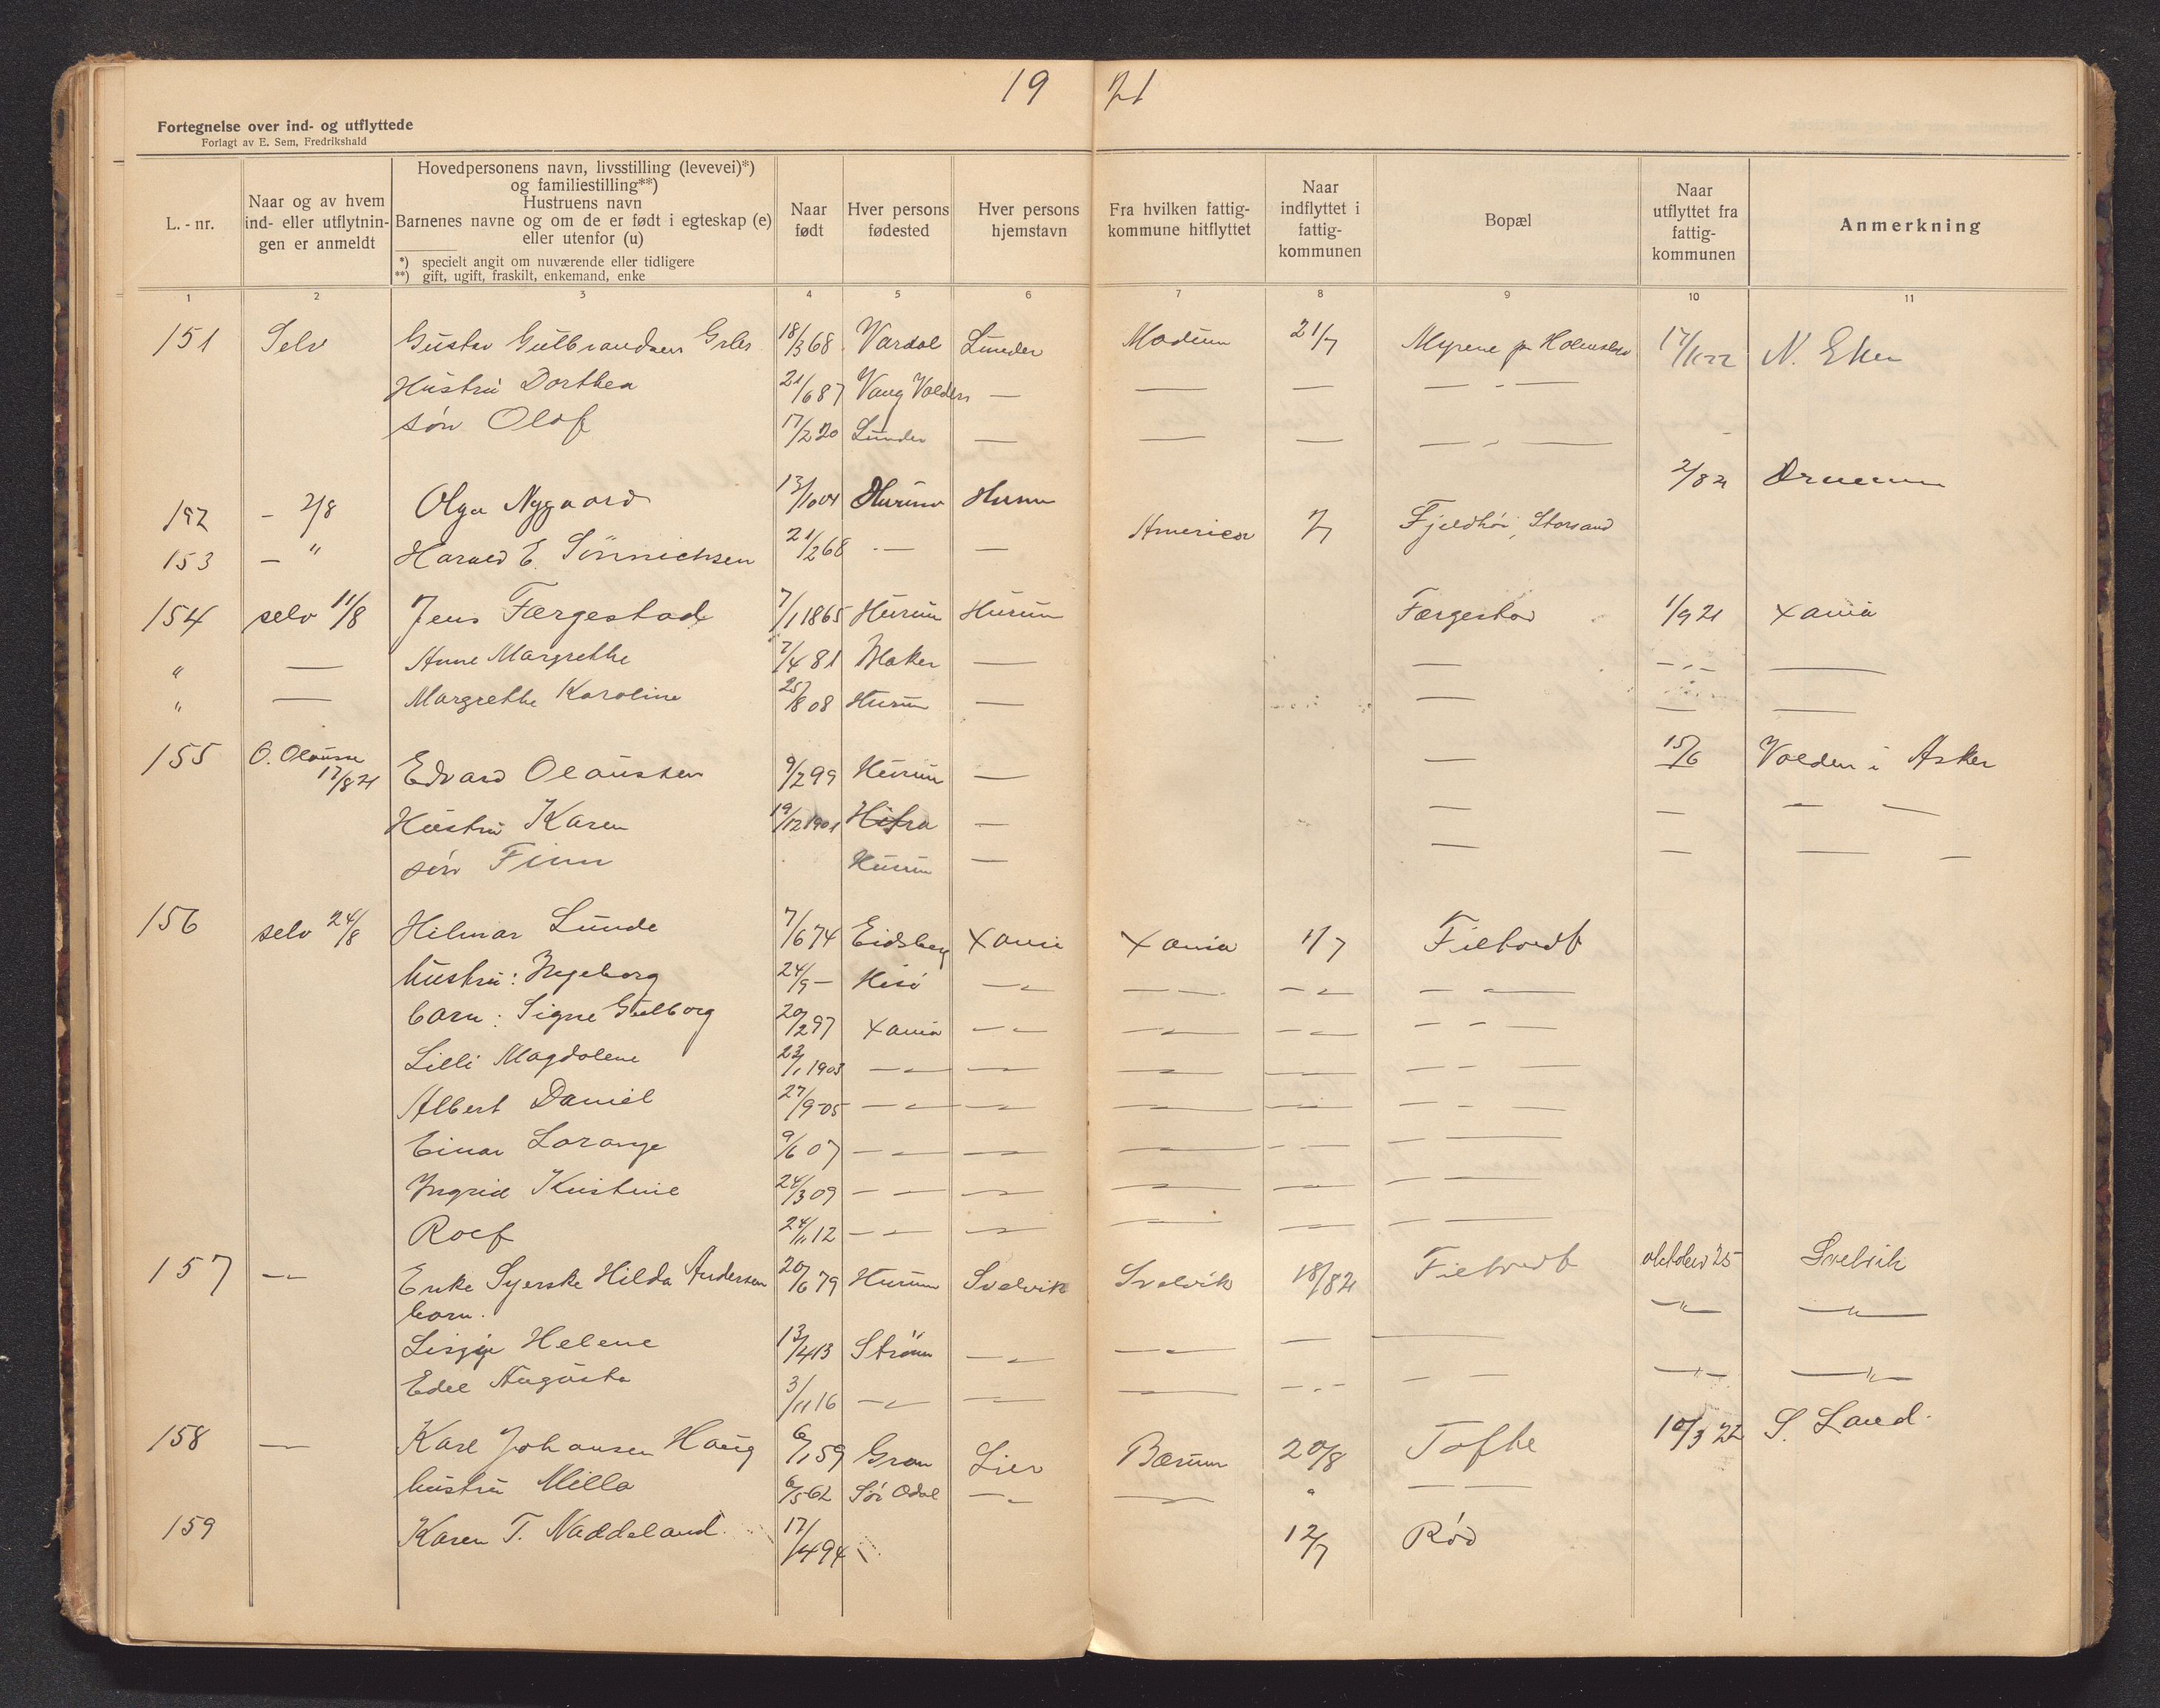 19 21
Fortegnelse over ind- og utflyttede
Forlagt av E. Sem, Fredrikshald
L. - nr.
Naar og av hvem
ind- eller utflytnin-
gen er anmeldt
Hovedpersonens navn, livsstilling (levevei)*)
og familiestilling**)
Hustruens navn
Barnenes navne og om de er født i egteskap (e)
eller utenfor (u)
*) specielt angit om nuværende eller tidligere
**) gift, ugift, fraskilt, enkemand, enke
Naar
født
Hver persons
fødested
Hver persons
hjemstavn
Fra hvilken fattig-
kommune hitflyttet
Naar
indflyttet i
fattig-
kommunen
Bopæl
Naar
utflyttet fra
fattig-
kommunen
Anmerkning
1 2 3 4 5 6 7 8 9 10 11
151 Selv Gustav Gulbrandsen 18/3 68 Vardal Lunder Modum 21/7 Myrene pr 17/1 22 N. Eker
Hustru Dorthea 21/6 87 Vang Valders — — — — - —
søn Olof 17/2 20 Lunder — — — — - —
192 - 2/8 Olga Nygaard 13/10 04 Hurum Hurum 2/8 21
153 - " Harald E. Sönnichsen 21/2 68 - — — America Fjeldhöi, Storsand
154 selv 11/8 Jens Færgestad 7/1 1865 Hurum Hurum Færgestad 1/9 21 Xania
" — Anne Margrethe 7/4 81 — — - " - —
" — Margrethe Karoline 25/8 08 Hurum — — — —
155 O. Olausen 17/8 21 Edvard Olaussen 9/2 99 Hurum — — 15/6 Volden i Asker
Hustru Karen 19/12 1901 Hitra — — — — —
søn Finn Hurum — — — — —
156 selv 24/8 Hilmar Lunde 7/6 74 Eidsberg Xania Xania 1/7 Filtvedt
hustru: Ingeborg 24/9 - Hisö — " — — - " — —
barn: Signe Gulborg 20/2 97 Xania — " — " — " — - —
Lilli Magdalene 23/1 1903 — " — — — — - —
Albert Daniel 27/9 05 — " — — — — - —
Einar Lorange 9/6 07 — — — — — - — —
Ingrid Kristine 24/3 09 — — — — — — - —
Rolf 24/11 12 — — — — — — - —
157 — " Enke Syerske Hilda Andersen 20/6 79 Hurum Svelvik Svelvik 18/8 21 Filtvedt oktober 25 Svelvik
barn. — " — — " —
Helene 13/4 13 Ström — " — " — —
Edel Augusta 3/11 16 — " — — - " - — — — " — — " —
158 — Karl Johansen Haug 6/1 59 Gran Lier Bærum 20/8 Tofte 10/3 22 S. Land.
hustru Milla 6/5 62 Sör Odal — " — " — —
159 Karen T. Naddeland. 17/4 94 12/7 Röd